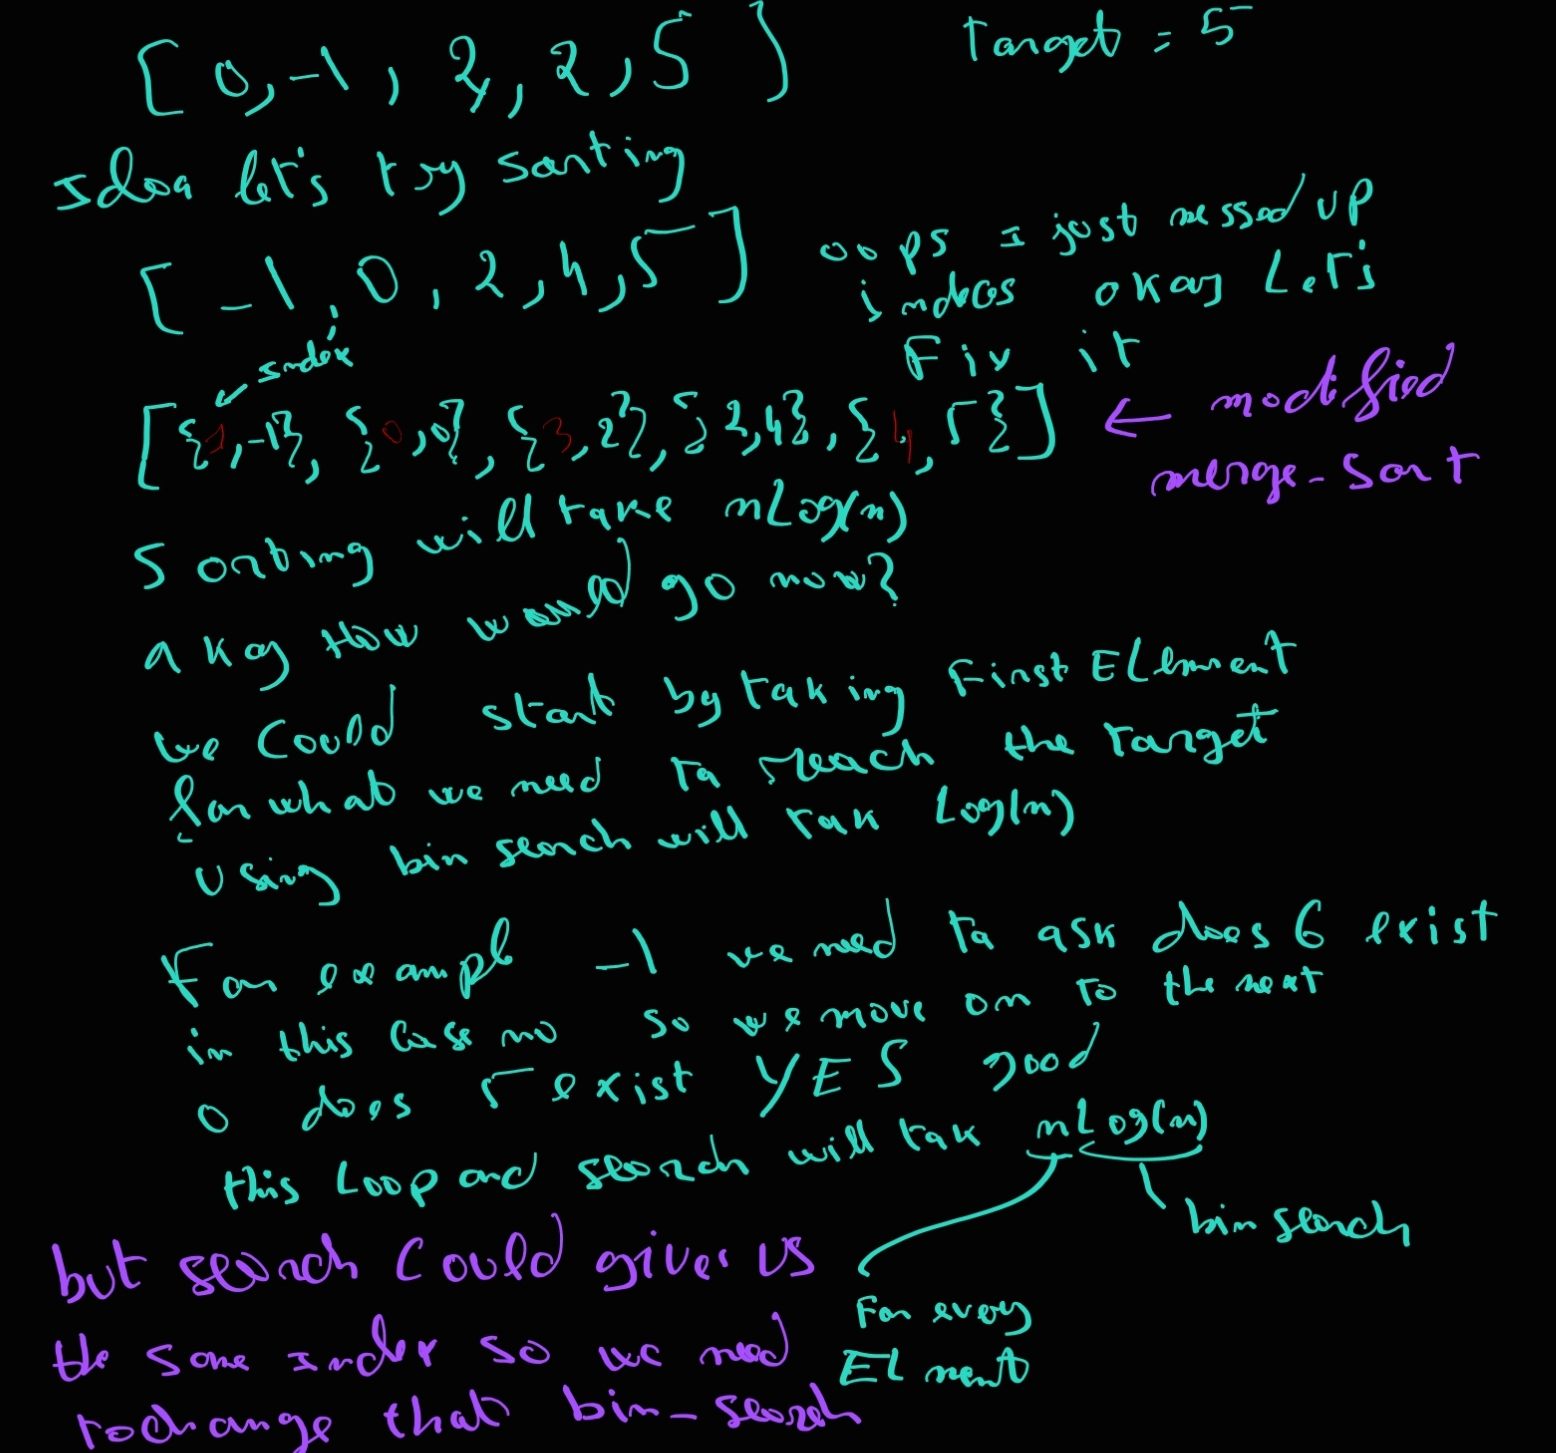 [ 0, -1, 2, 2, 5 ] Target = 5
Idea let's try sorting
[ -1, 0, 2, 4, 5 ]
oops I just messed up
indices okay Let's
Fix it
index
[{1,-1}, {0,0}, {3,2}, {2,4}, {4,5}] ← modified
merge-sort
Sorting will take nLog(n)
okay How would go now?
we could start by taking First Element
for what we need to reach the target
using bin search will tak Log(n)
For exampl -1 we need to ask does 6 exist
in this case no so we move on to the next
0 does 5 exist YES good
this Loop and search will tak nLog(n)
bin search
For every
Element
but search could gives us
the same Index so we need
to change that bin-search